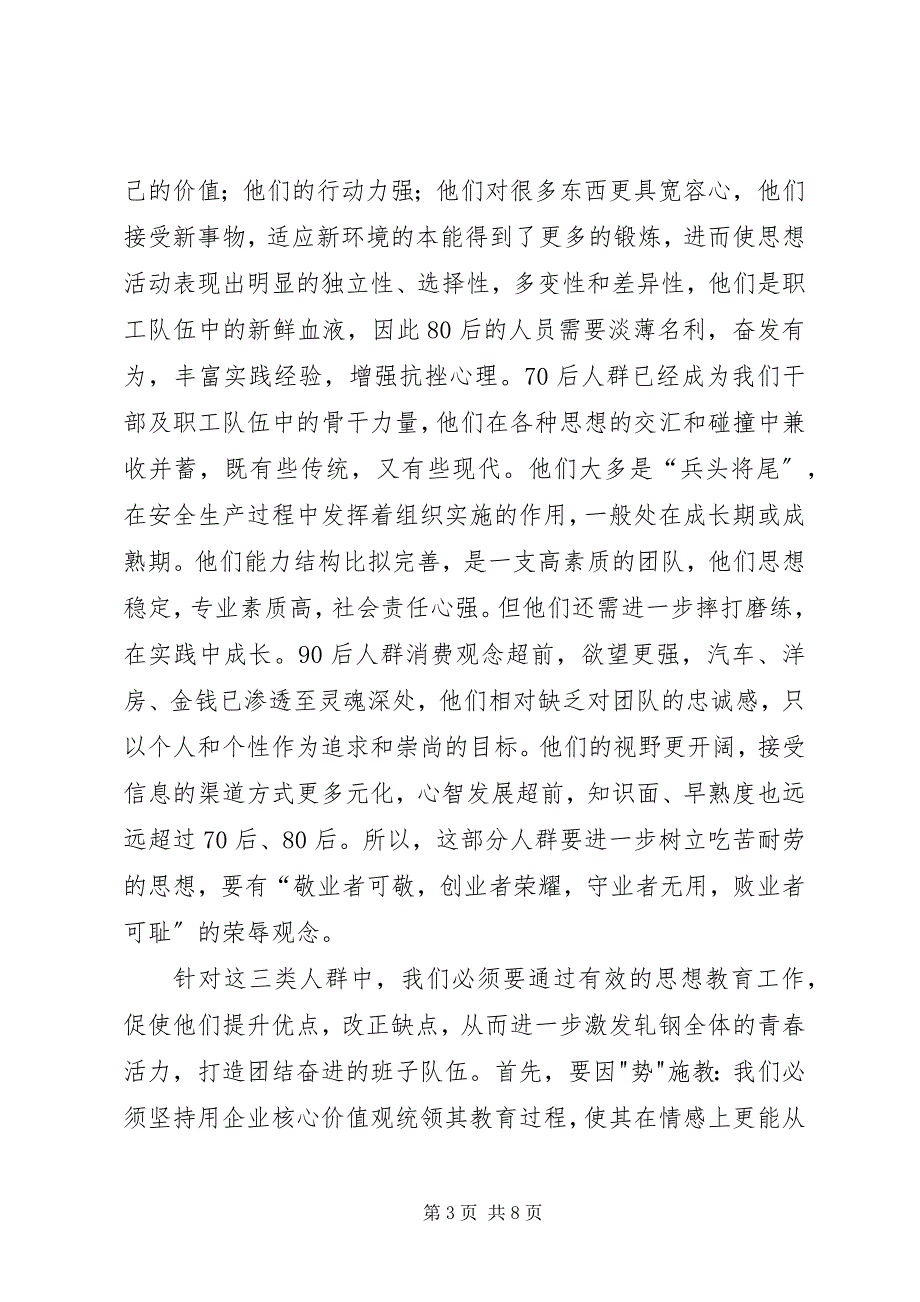 己的价值；他们的行动力强；他们对很多东西更具宽容心，他们
接受新事物，适应新环境的本能得到了更多的锻炼，进而使思想
活动表现出明显的独立性、选择性，多变性和差异性，他们是职
工队伍中的新鲜血液，因此 80 后的人员需要淡薄名利，奋发有
为，丰富实践经验，增强抗挫心理。70 后人群已经成为我们干
部及职工队伍中的骨干力量，他们在各种思想的交汇和碰撞中兼
收并蓄，既有些传统，又有些现代。他们大多是“兵头将尾〞，
在安全生产过程中发挥着组织实施的作用，一般处在成长期或成
熟期。他们能力结构比拟完善，是一支高素质的团队，他们思想
稳定，专业素质高，社会责任心强。但他们还需进一步摔打磨练，
在实践中成长。90 后人群消费观念超前，欲望更强，汽车、洋
房、金钱已渗透至灵魂深处，他们相对缺乏对团队的忠诚感，只
以个人和个性作为追求和崇尚的目标。他们的视野更开阔，接受
信息的渠道方式更多元化，心智发展超前，知识面、早熟度也远
远超过 70 后、80 后。所以，这部分人群要进一步树立吃苦耐劳
的思想，要有“敬业者可敬，创业者荣耀，守业者无用，败业者
可耻〞的荣辱观念。
针对这三类人群中，我们必须要通过有效的思想教育工作，
促使他们提升优点，改正缺点，从而进一步激发轧钢全体的青春
活力，打造团结奋进的班子队伍。首先，要因"势"施教：我们必
须坚持用企业核心价值观统领其教育过程，使其在情感上更能从
第 3 页 共 8 页